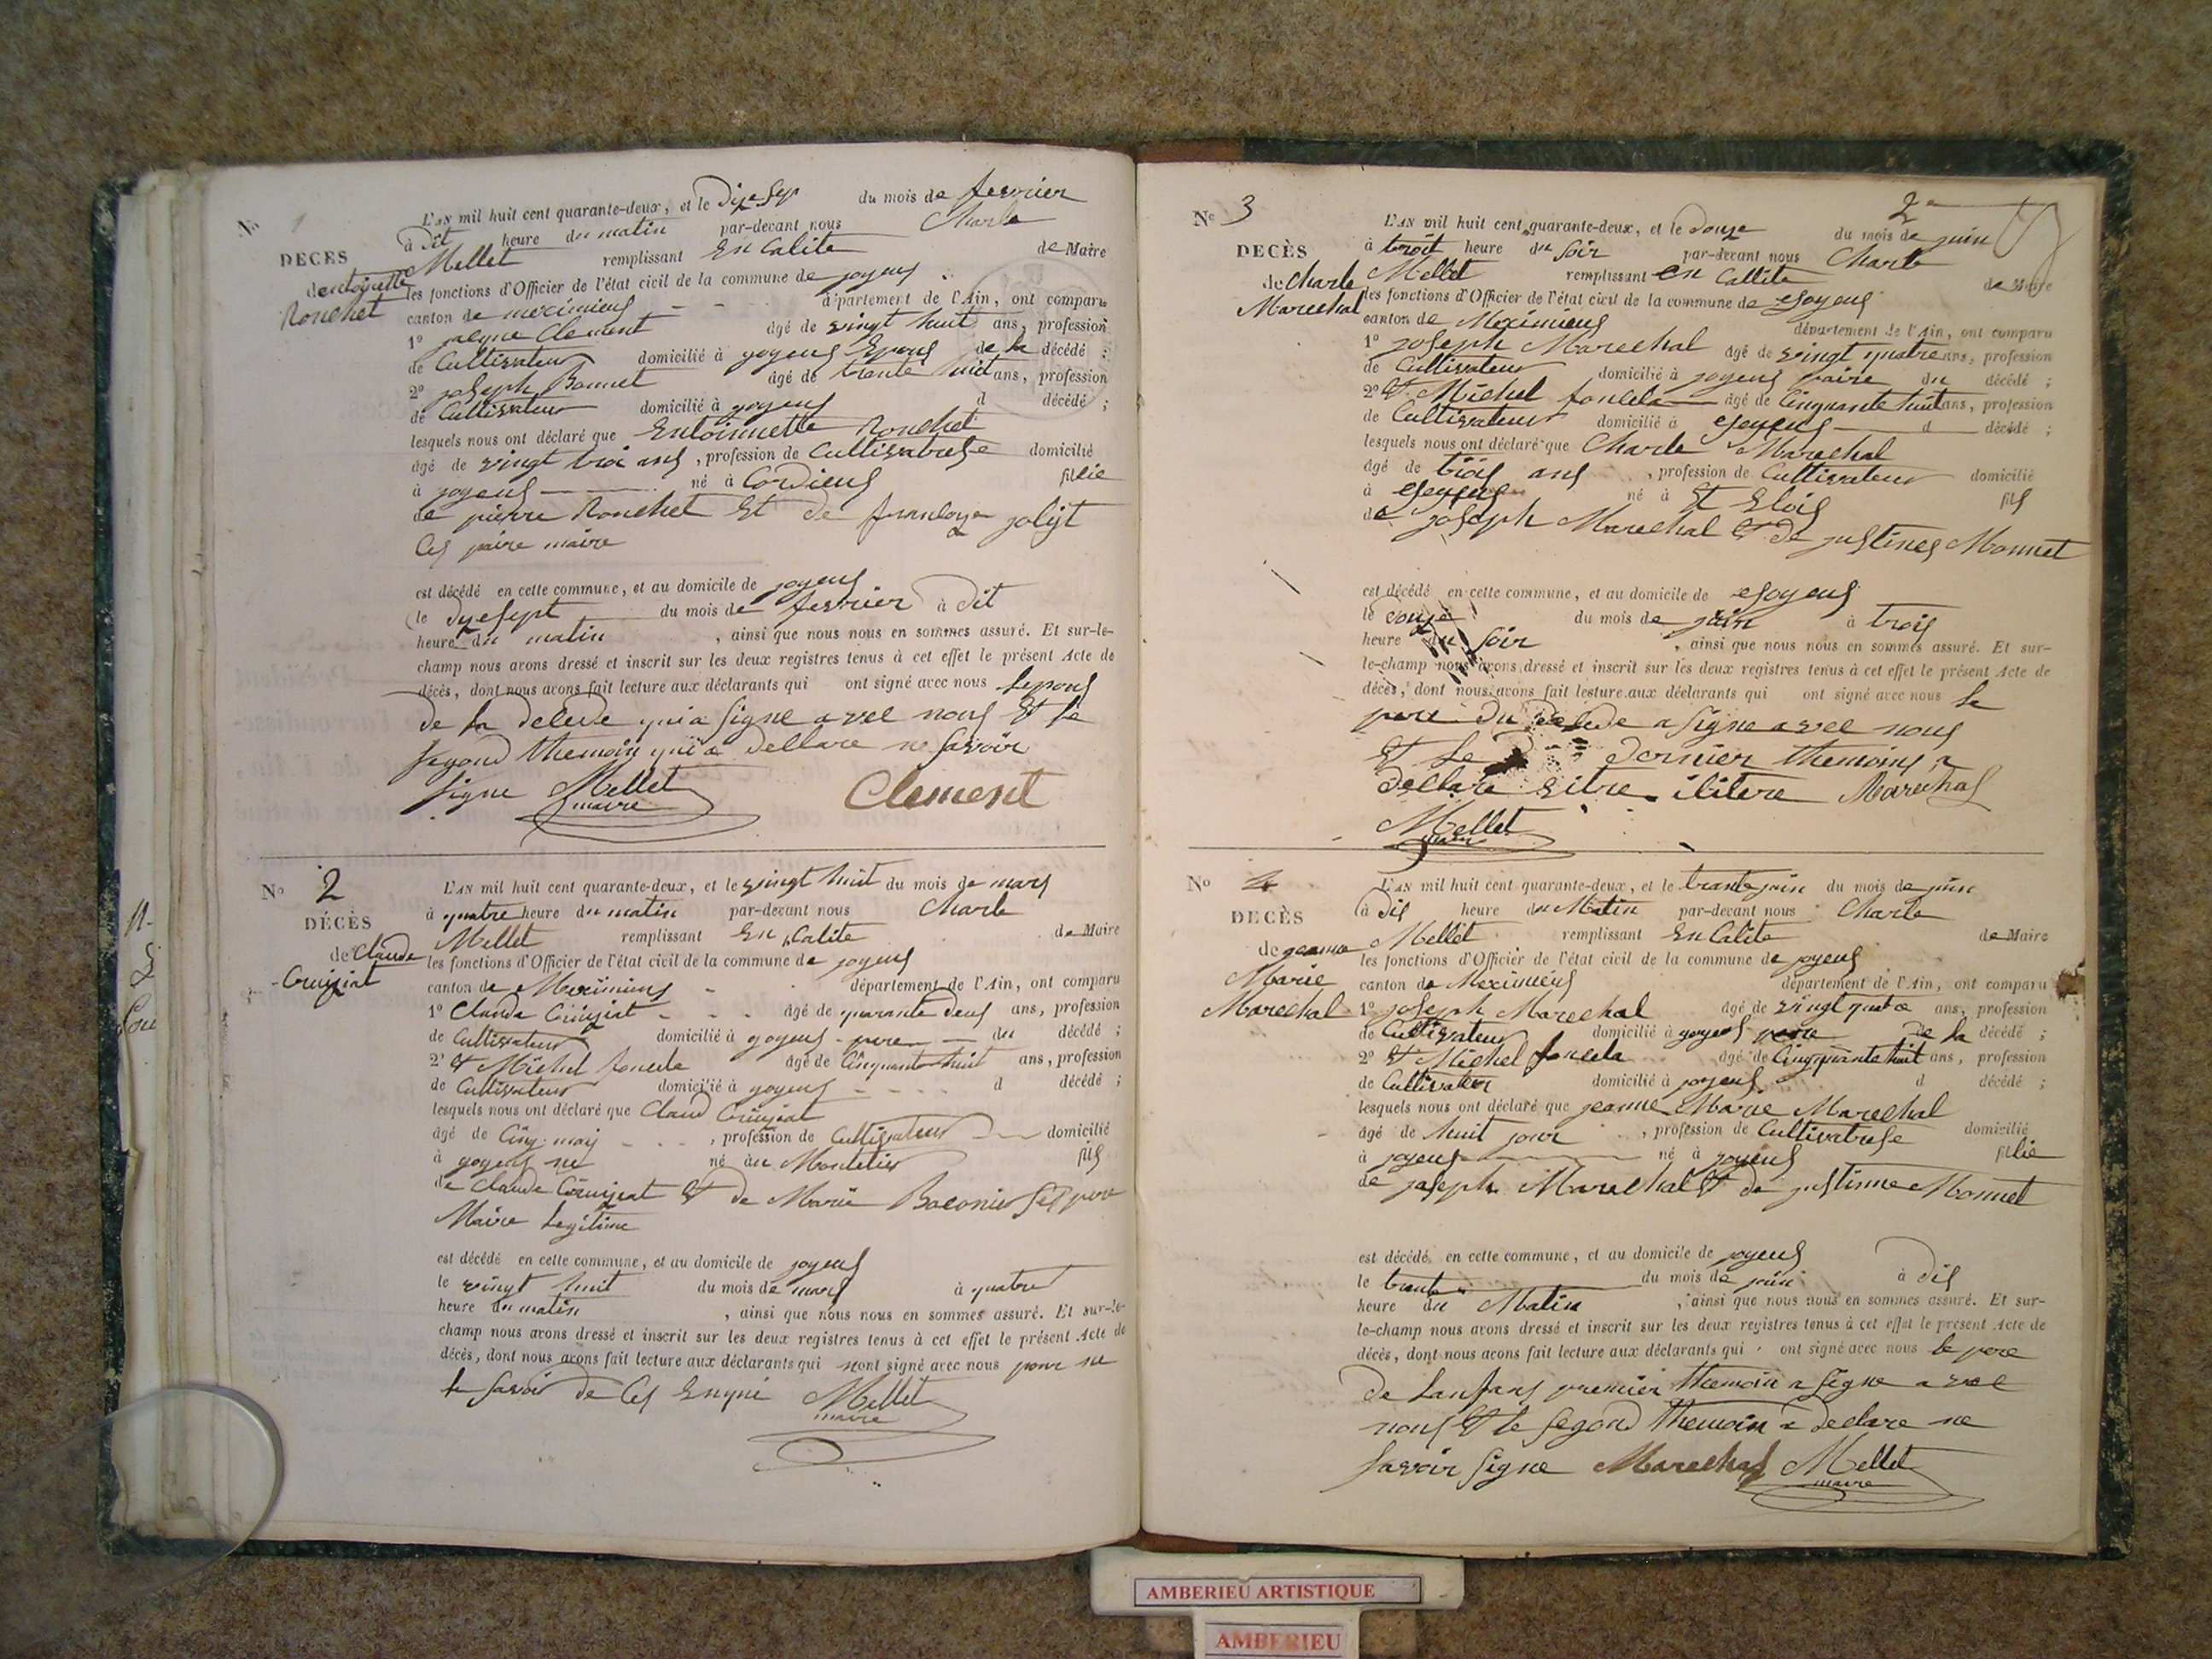 No 1
DECES
de entoinette
Ronchet
L'AN mil huit cent quarante-deux, et le dixe sep du mois de fevrier
à dit heure du matin par-devant nous Charle
Mellet remplissant En Calite de Maire
les fonctions d'Officier de l'état civil de la commune de joyeus
canton de meximieus département de l'Ain, ont comparu
1° Clement âgé de vingt huit ans, profession
de Cultivateur domicilié à joyeus Epous de la décédé ;
2° joseph Bonnet âgé de trente huit ans, profession
de Cultivateur domicilié à joyeus d décédé ;
lesquels nous ont déclaré que Entoinnette Ronchet
âgé de vingt troi ans, profession de Cultivatrise domicilié
à joyeus né à Cordieus fillie
de pierre Ronchet Et de jolijt
Ces paire maire
est décédé en cette commune, et au domicile de joyeus
le dyesept du mois de fevrier à dit
heure du matin, ainsi que nous nous en sommes assuré. Et sur-le-
champ nous avons dressé et inscrit sur les deux registres tenus à cet effet le présent Acte de
décès, dont nous avons fait lecture aux déclarants qui ont signé avec nous Lepous
de la delede qui a signe avel nous Et le
segond themoin qui a dellare ne savoir
signe Mellet Clement
maire
No 2
DÉCÈS
de Claude
Cruijiat
L'AN mil huit cent quarante-deux, et le vingt huit du mois de mars
à quatre heure du matin par-devant nous Charle
Mellet remplissant En Calite de Maire
les fonctions d'Officier de l'état civil de la commune de joyeus
canton de Meximieus département de l'Ain, ont comparu
1° Claude Cruijiat âgé de quarante deus ans, profession
de Cultivateur domicilié à joyeus pere du décédé ;
2° Et Michel foncla âgé de Cinquante huit ans, profession
de Cultivateur domicilié à joyeus d décédé ;
lesquels nous ont déclaré que Claud Cruijiat
âgé de Cinq mois, profession de Cultivateur domicilié
à joyeus ne né àu Montelier fils
de Claude Cruijiat Et de Marie Baconier ses pere
Maire Legitime
est décédé en cette commune, et au domicile de joyeus
le vingt huit du mois de mars à quatre
heure du matin, ainsi que nous nous en sommes assuré. Et sur-le-
champ nous avons dressé et inscrit sur les deux registres tenus à cet effet le présent Acte de
décès, dont nous avons fait lecture aux déclarants qui nont signé avec nous pour ne
le savoir de Ces Mellet
maire
2e
No 3
DECÈS
de Charle
Marechal
L'AN mil huit cent quarante-deux, et le douze du mois de juin
à troit heure du soir par-devant nous Charle
Mellet remplissant en Callite de Maire
les fonctions d'Officier de l'état civil de la commune de joyeus
canton de Meximieus département de l'Ain, ont comparu
1° joseph Marechal âgé de vingt quatre ans, profession
de Cultivateur domicilié à joyeus paire du décédé ;
2° Et Michel foncla âgé de Cinquante huit ans, profession
de Cultivateur domicilié à joyeus d décédé ;
lesquels nous ont déclaré que Charle Marechal
âgé de trois ans, profession de Cultivateur domicilié
à joyeus né à St Elois fils
de joseph Marechal Et de justines Monnet
est décédé en cette commune, et au domicile de joyeus
le douze du mois de juin à trois
heure du soir, ainsi que nous nous en sommes assuré. Et sur-
le-champ nous avons dressé et inscrit sur les deux registres tenus à cet effet le présent Acte de
décès, dont nous avons fait lecture aux déclarants qui ont signé avec nous Le
pere du delede a signe avel nous
Et Le dernier themoins a
dellare eitre ilitere Marechal
Mellet
maire
No 4
DECÈS
de jeanne
Marie
Marechal
L'AN mil huit cent quarante-deux, et le trante juin du mois de juin
à dis heure du Matin par-devant nous Charle
Mellet remplissant En Calite de Maire
les fonctions d'Officier de l'état civil de la commune de joyeus
canton de Meximieus département de l'Ain, ont comparu
1° joseph Marechal âgé de vingt ans, profession
de Cultivateur domicilié à joyeus pere de la décédé ;
2° Et Michel foncla âgé de Cinquante huit ans, profession
de Cultivateur domicilié à joyeus d décédé ;
lesquels nous ont déclaré que jeanne Marie Marechal
âgé de huit jour, profession de Cultivatrise domicilié
à joyeus né à joyeus fillie
de joseph Marechal Et de justinne Monnet
est décédé en cette commune, et au domicile de joyeus
le trante du mois de juin à dis
heure du Matin, ainsi que nous nous en sommes assuré. Et sur-
le-champ nous avons dressé et inscrit sur les deux registres tenus à cet effet le présent Acte de
décès, dont nous avons fait lecture aux déclarants qui ont signé avec nous le pere
de Lanfans premier themoin a signe avel
nous Et le segond themoin a declare ne
savoir signe Marechal Mellet
maire
AMBERIEU ARTISTIQUE
AMBERIEU